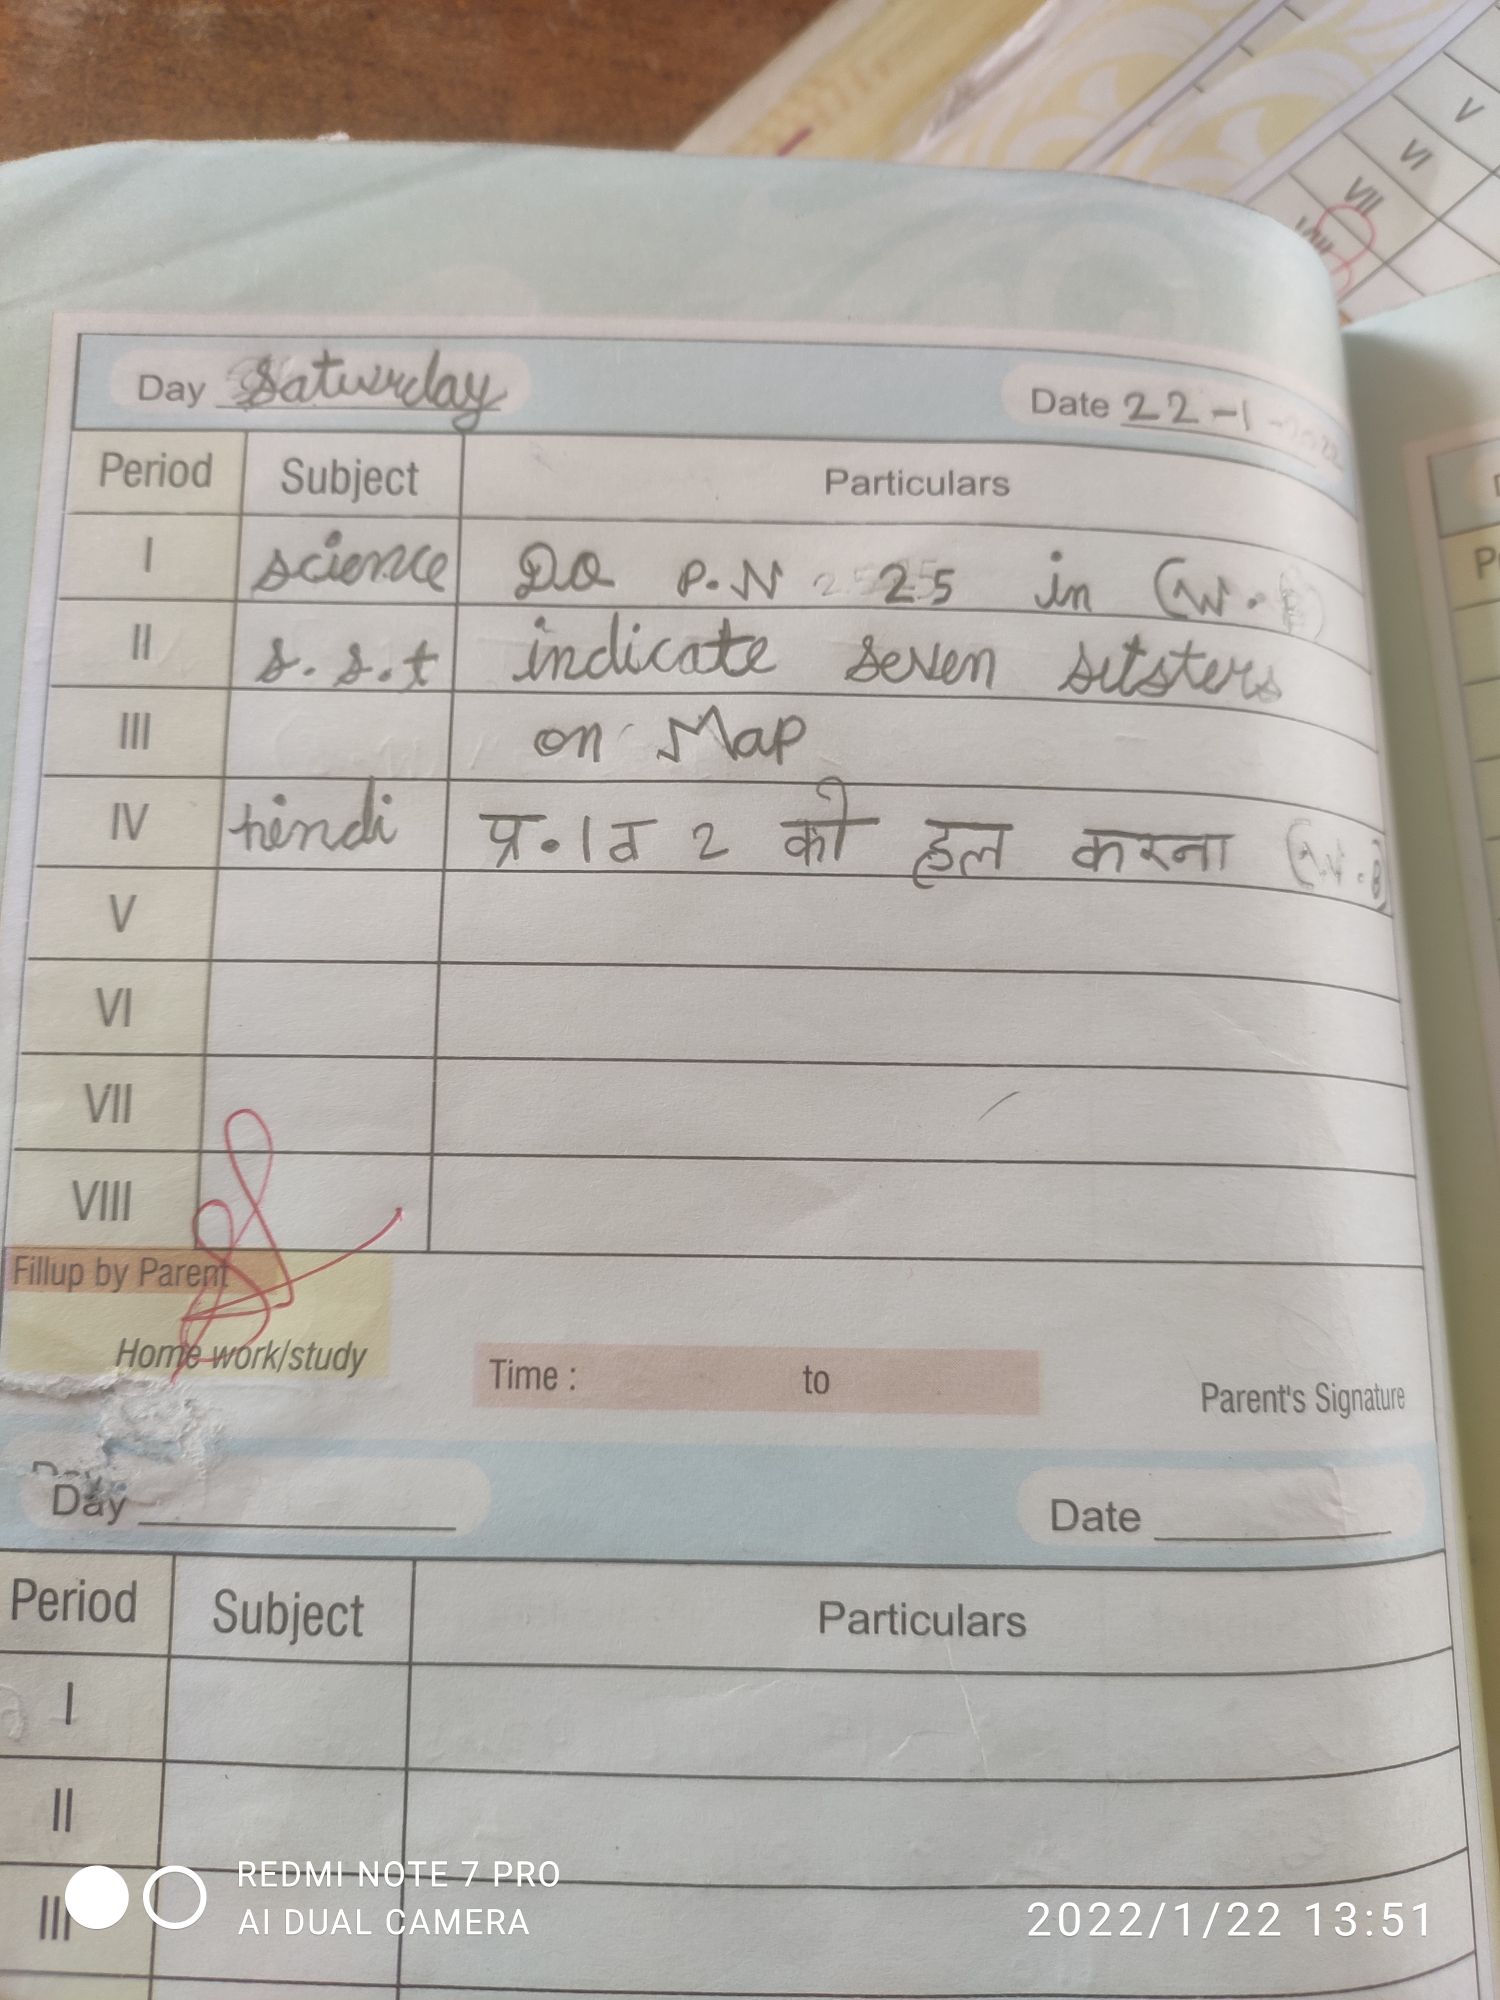 V
VI
VII
VIII
Day Saturday Date 22-1-2022
Period Subject Particulars
I science Do P.N 25 in (W.B)
II s.s.t indicate seven sitsters
III on Map
IV hindi प्र.1 व 2 को हल करना (W.B)
V
VI
VII
VIII
Fillup by Parent
Home work/study Time : to Parent's Signature
Day Date
Period Subject Particulars
I
II
III
REDMI NOTE 7 PRO
AI DUAL CAMERA 2022/1/22 13:51